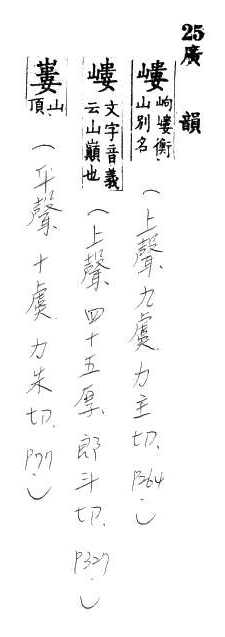 25
廣韻
嶁 岣嶁衡山別名 (上聲 九虞 力主切. P264.)
嶁 文字音義云山巓也 (上聲 四十五厚 郎斗切. P327.)
山頂 (平聲 十虞 力朱切. P77.)